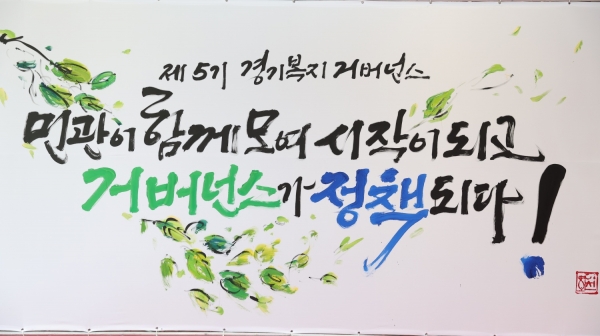 제 5기 경기복지 거버넌스
민관이 함께 모여 시작이 되고
거버넌스가 정책 되다!